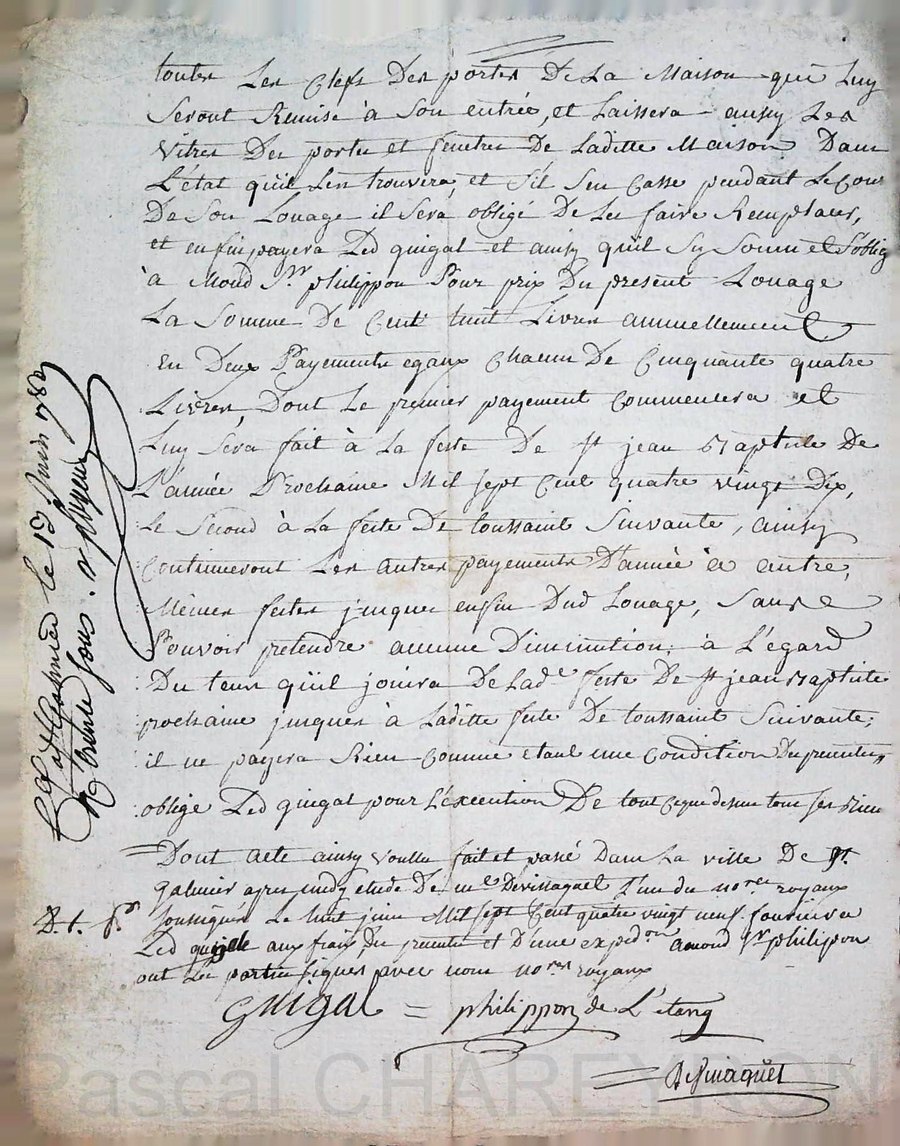 toutes Les Clefs Des portes De La Maison qui Luy
Seront Remise à Son entrée, et Laissera ainsy Les
Vitres Des portes et fenetres De Laditte Maison Dans
L'état qu'il Les trouvera, et S'il Sen Casse pendant Le Cour
De Son Louage il Sera obligé De Les faire Remplacer,
et enfin payera Led guigal et ainsy qu'il Sy Soumet S'oblig
à Mond Sr philippon Pour prix Du present Louage
La Somme De Cent huit Livres annuellement
En Deux Payements egaux Chacun De Cinquante quatre
Livres, Dont Le premier payement Commencera et
Luy Sera fait à La feste De St jean Baptiste De
L'année Prochaine Mil Sept Cent quatre vingt Dix,
Le Second à La feste De toussaint Suivante, ainsy
Continueront Les autres payements D'année à autre,
Mêmes festes jusques enfin Dud Louage, Sans
Pouvoir pretendre aucune Diminution, à L'égard
Du tems qu'il jouira De Lade feste De St jean Baptiste
prochaine jusques à Laditte feste De toussaint Suivante;
il ne payera Rien Comme etant une Condition Du present
oblige Led guigal pour L'éxecution De tout Ceque dessus tous ses Biens
Dont acte ainsy voullu fait et passé Dans La ville De St.
galmier apres midy etude De me Devinaquet L'un des nores royaux
soussignés Le huit juin Mil Sept Cent quatre vingt neuf fournira
Led guigale aux frais Du presentes et D'une expedon amond Sr philipon
ont Les parties signés avec nous nores royaux
guigal = philippon de L'étang
Galmier le 19 juin 1789